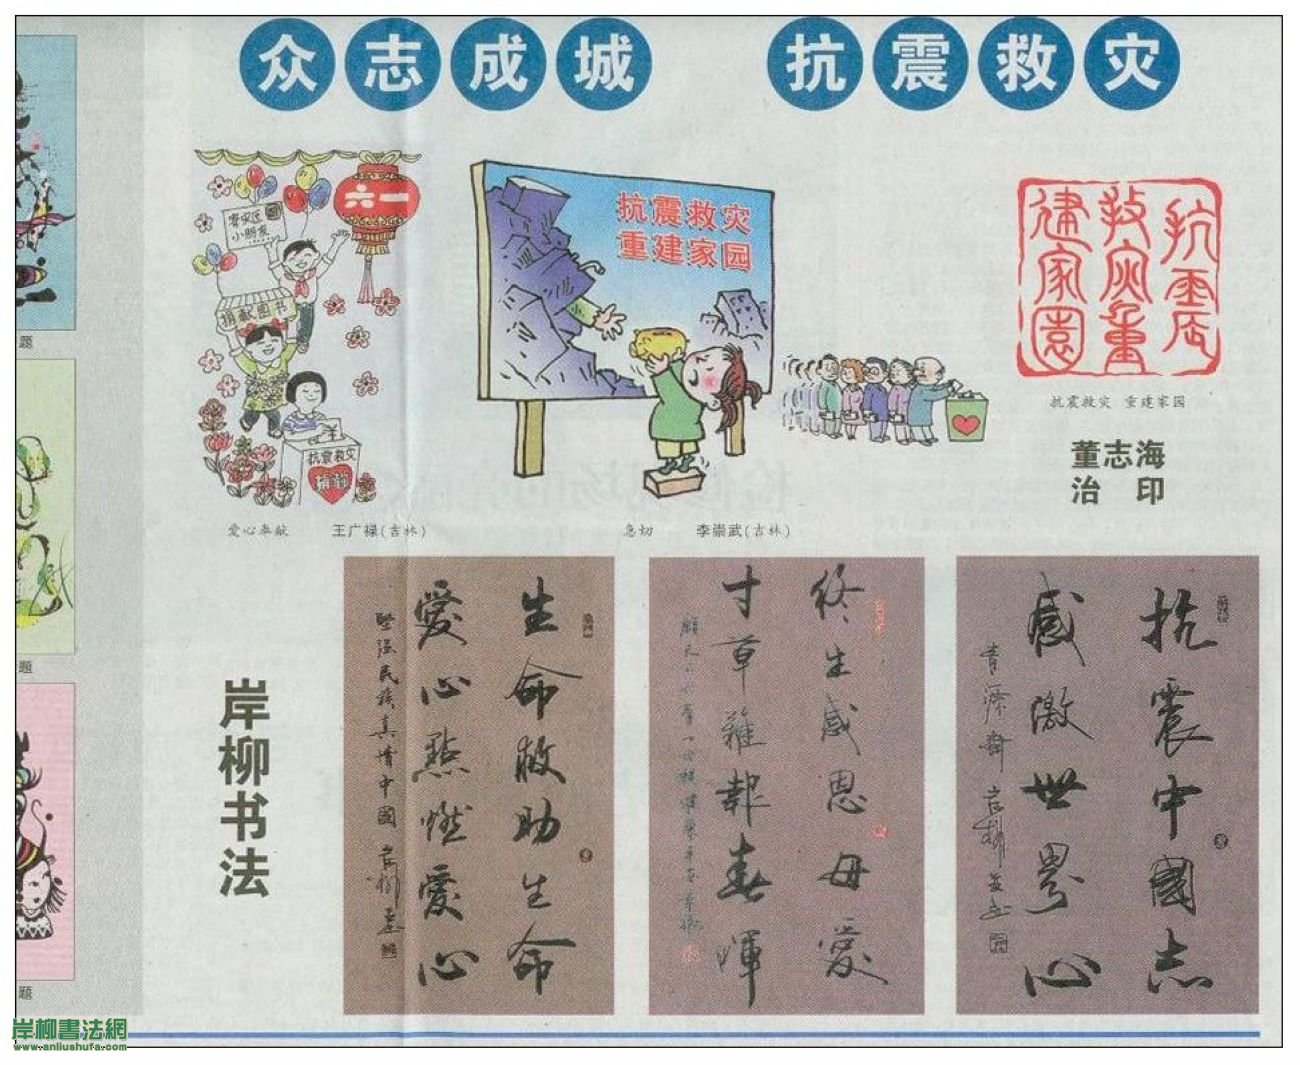 众志成城 抗震救灾
六一
寄灾区
小朋友
捐献图书
抗震救灾
捐款
抗震救灾
重建家园
抗震救灾重建家園
抗震救灾 重建家园
董志海
治 印
爱心奉献 王广禄(吉林)
急切 李崇武(吉林)
岸柳书法
生命救助生命
愛心點燃愛心
堅强民族真情中國 岸柳書
终生感恩母愛
寸草難報春暉
抗震中國志
感激世界心
青源齋 岸柳
题
题
题
岸柳書法網
www.anliushufa.com